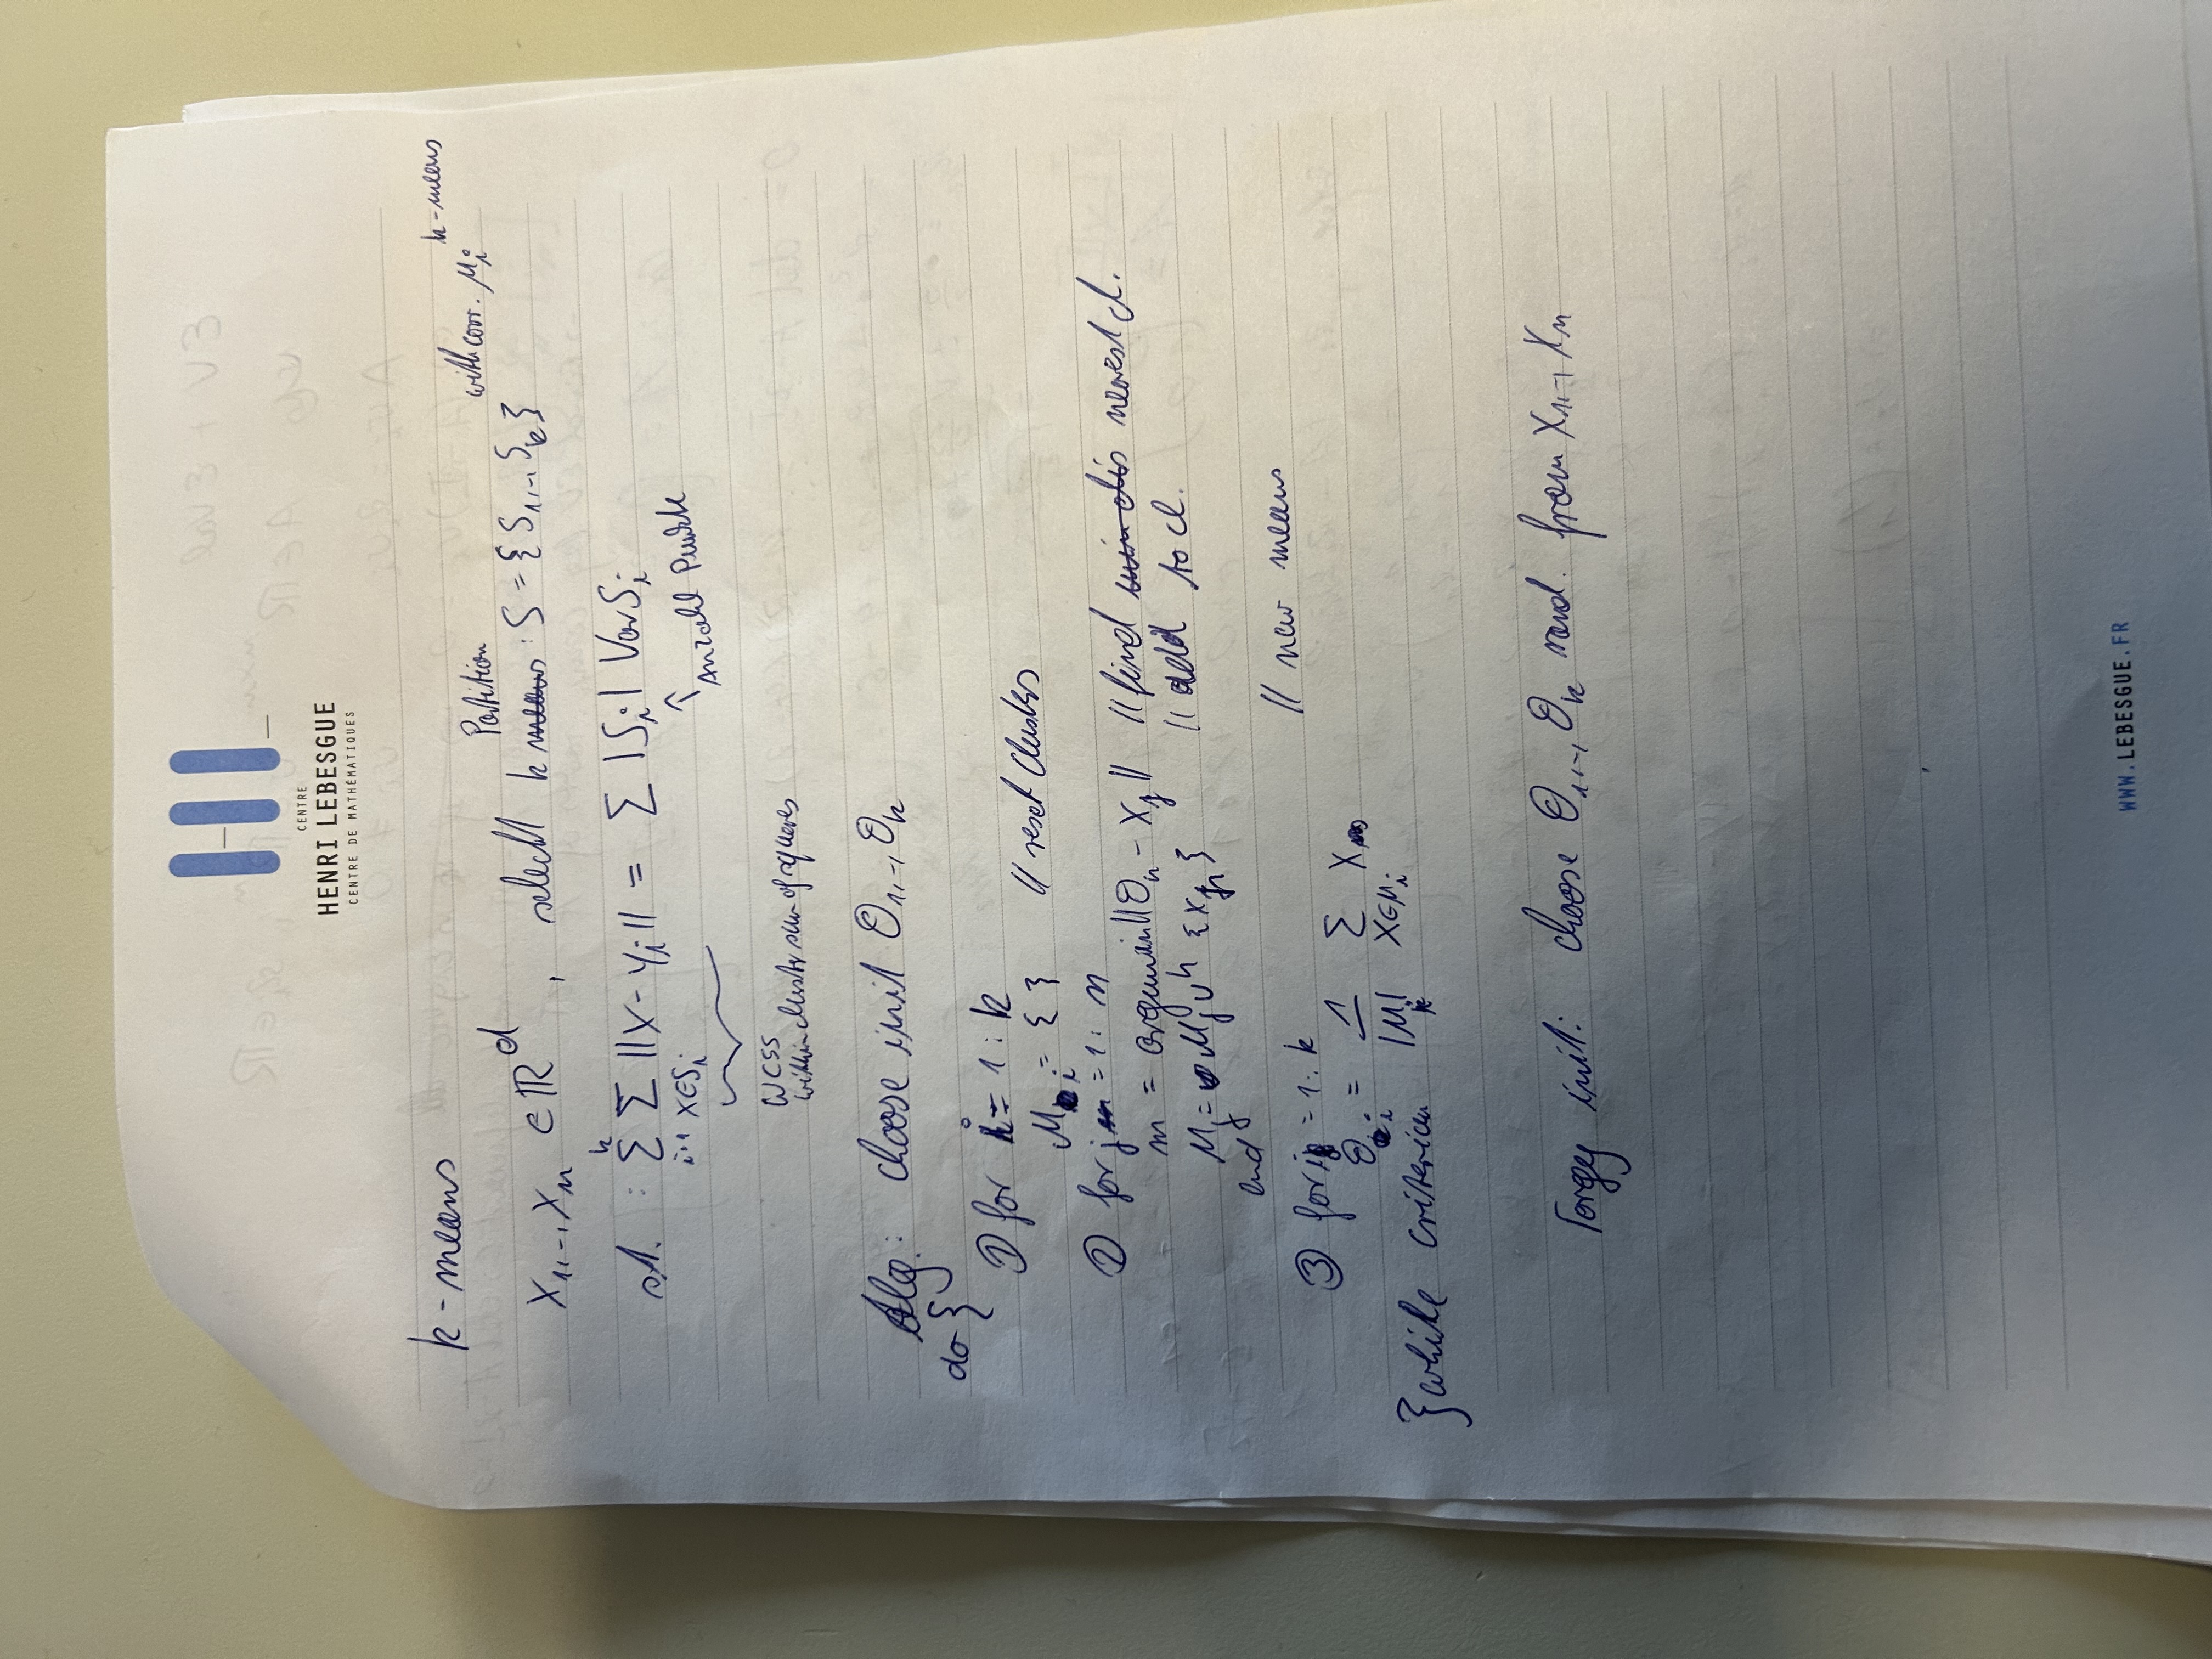 CENTRE
HENRI LEBESGUE
CENTRE DE MATHÉMATIQUES
k-means
Partition with corr. μi k-means
X1,..,Xn ∈ ℝ^d , select k means : S = {S1,..,Sk}
st. : Σ_{i=1}^k Σ_{X∈Si} ||X - μi|| = Σ |Si| Var Si
↑ Anzahl Punkte
WCSS
within cluster sum of squares
Alg.: choose init Θ1,..,Θk
do {
① for i = 1 : k
Mi = { } // reset clusters
② for j = 1 : n
m = argmin ||Θn - Xj|| // find min dis nearest cl.
Mj = Mj ∪ {Xj} // add to cl.
end
③ for i = 1 : k // new means
Θi = 1/|Mi| Σ_{X∈Mi} X
} while criterion
Forgy init: choose Θ1,..,Θk rand. from X1,..,Xn
WWW.LEBESGUE.FR